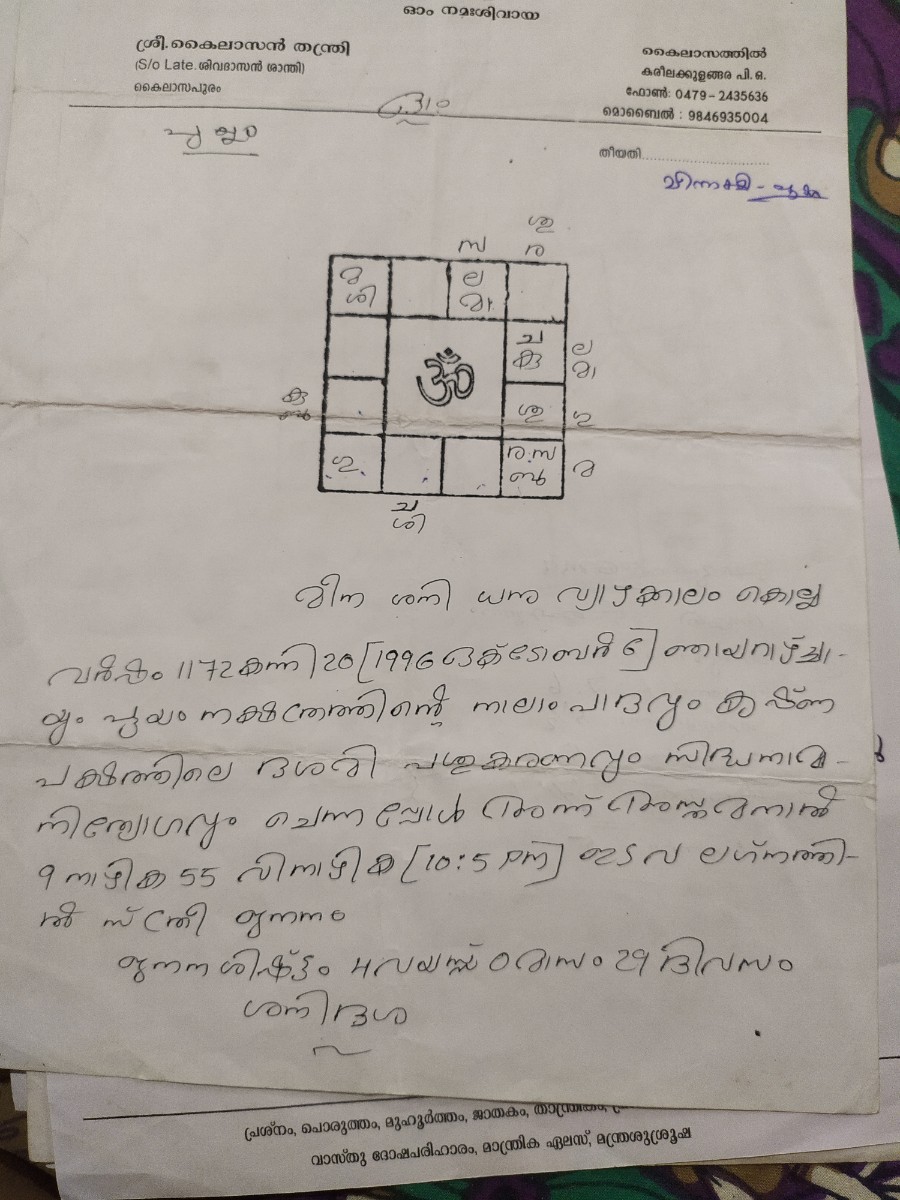 ഓം നമഃശിവായ
ശ്രീ.കൈലാസൻ തന്ത്രി
(S/o Late.ശിവദാസൻ ശാന്തി)
കൈലാസപുരം
കൈലാസത്തിൽ
കരീലക്കുളങ്ങര പി.ഒ.
ഫോൺ: 0479 - 2435636
മൊബൈൽ : 9846935004
തീയതി
പൂയം
സ
ര
ശി
ല
മാ
ച
കു
ല
മാ
ശു
കു
ഗു
ര.സ
ബു
ച
ശി
ॐ
മീന ശനി ധനു വ്യാഴക്കാലം കൊല്ല
വർഷം 1172 കന്നി 20 [1996 ഒക്ടോബർ 6] ഞായറാഴ്ച
യും പൂയം നക്ഷത്രത്തിന്റെ നാലാം പാദവും കൃഷ്ണ
പക്ഷത്തിലെ ദശമി പശുകരണവും സിദ്ധനാമ-
നിത്യോഗവും ചെന്നപ്പോൾ അന്ന് അസ്തമനാൽ
9 നാഴിക 55 വിനാഴിക [10:5 PM] ഇടവ ലഗ്നത്തി-
ൽ സ്ത്രീ ജനനം
ജനനശിഷ്ടം 4 വയസ്സ് 0 മാസം 29 ദിവസം
ശനിദശ
പ്രശ്നം, പൊരുത്തം, മുഹൂർത്തം, ജാതകം, താന്ത്രികം,
വാസ്തു ദോഷപരിഹാരം, മാന്ത്രിക ഏലസ്, മന്ത്രശുശ്രൂഷ